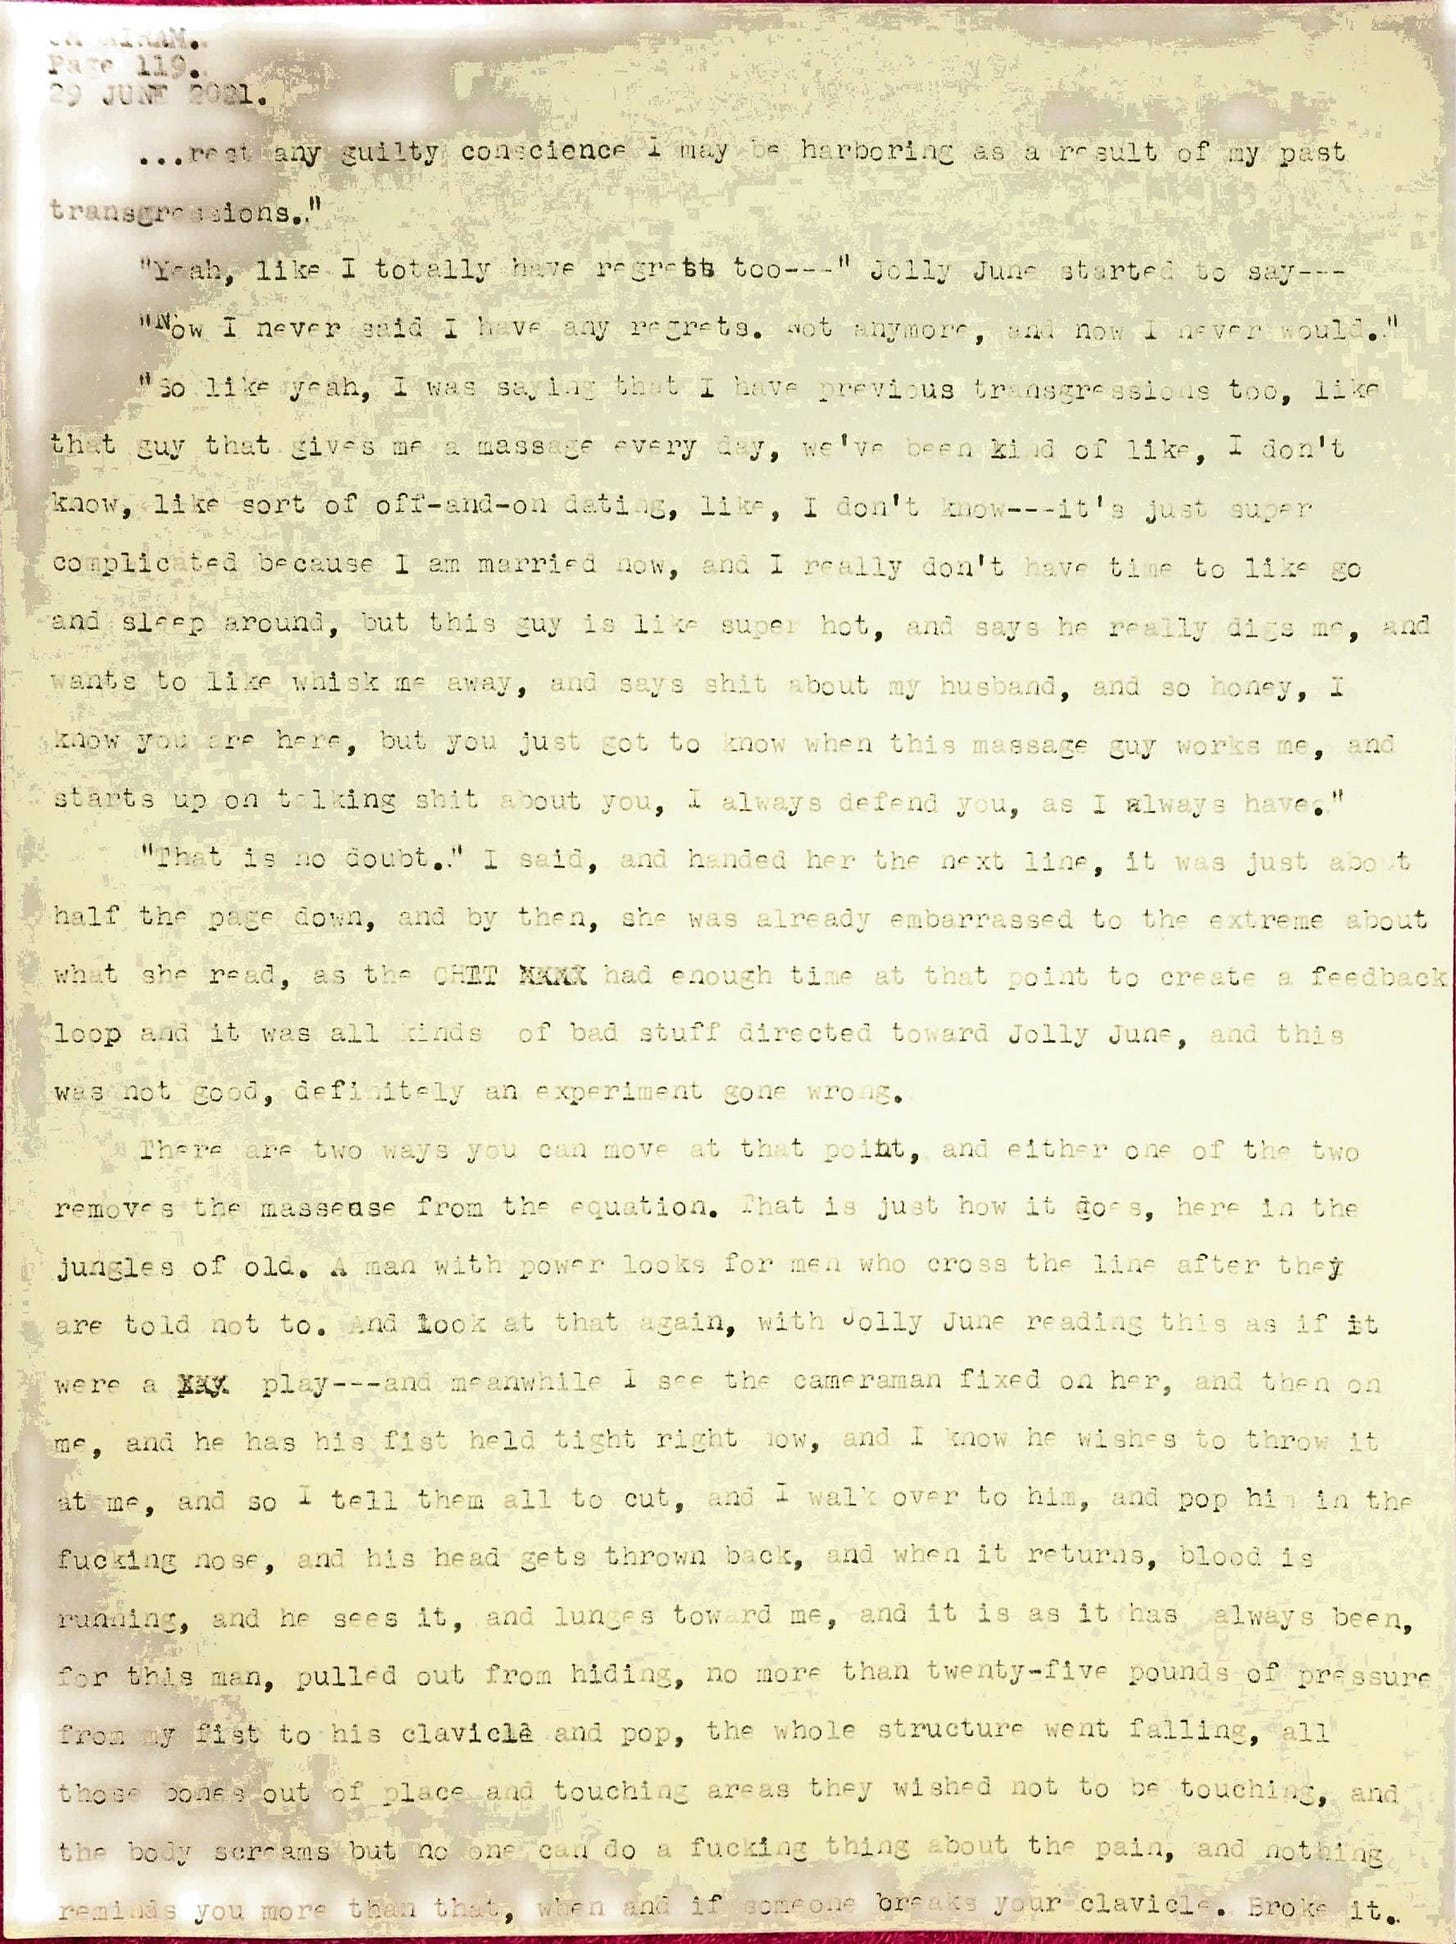 Page 119.
29 JUNE 2021.
...rest any guilty conscience I may be harboring as a result of my past
transgressions."
"Yeah, like I totally have regrets too---" Jolly June started to say---
"Now I never said I have any regrets. Not anymore, and now I never would."
"So like yeah, I was saying that I have previous transgressions too, like
that guy that gives me a massage every day, we've been kind of like, I don't
know, like sort of off-and-on dating, like, I don't know---it's just super
complicated because I am married now, and I really don't have time to like go
and sleep around, but this guy is like super hot, and says he really digs me, and
wants to like whisk me away, and says shit about my husband, and so honey, I
know you are here, but you just got to know when this massage guy works me, and
starts up on talking shit about you, I always defend you, as I always have."
"That is no doubt." I said, and handed her the next line, it was just about
half the page down, and by then, she was already embarrassed to the extreme about
what she read, as the CHIT XXXX had enough time at that point to create a feedback
loop and it was all kinds of bad stuff directed toward Jolly June, and this
was not good, definitely an experiment gone wrong.
There are two ways you can move at that point, and either one of the two
removes the masseuse from the equation. That is just how it goes, here in the
jungles of old. A man with power looks for men who cross the line after they
are told not to. And look at that again, with Jolly June reading this as if it
were a XXX play---and meanwhile I see the cameraman fixed on her, and then on
me, and he has his fist held tight right now, and I know he wishes to throw it
at me, and so I tell them all to cut, and I walk over to him, and pop him in the
fucking nose, and his head gets thrown back, and when it returns, blood is
running, and he sees it, and lunges toward me, and it is as it has always been,
for this man, pulled out from hiding, no more than twenty-five pounds of pressure
from my fist to his clavicle and pop, the whole structure went falling, all
those bones out of place and touching areas they wished not to be touching, and
the body screams but no one can do a fucking thing about the pain, and nothing
reminds you more than that, when and if someone breaks your clavicle. Broke it.